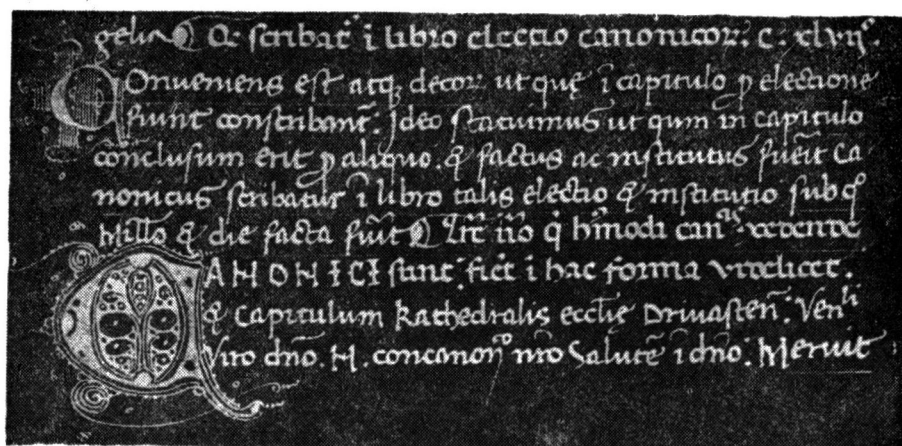 gelia Qꝛ scribat᷑ ĩ libro electio canonicoꝝ: c: xlvıȷ.
Conueniens est atqꝫ decoꝝ ut quę ĩ capitulo ꝑ electione
fiunt conscribant᷑: Ideo statuimus ut qum in capitulo
cõnclusum erit ꝑ aliquo. ꝙ factus ac institutus fueĩt ca
nonicus scribatur ĩ libro talis electio & institutio sub
Millo & die facta fuĩt ĩ can
CANONICI fiet ĩ hac forma videlicet.
& Capitulum kathedralis eccłię Drivasteñ: Venˡⁱ
Viro dño. N. concanoñ nr̃o Salutẽ ĩ dño: Meruit